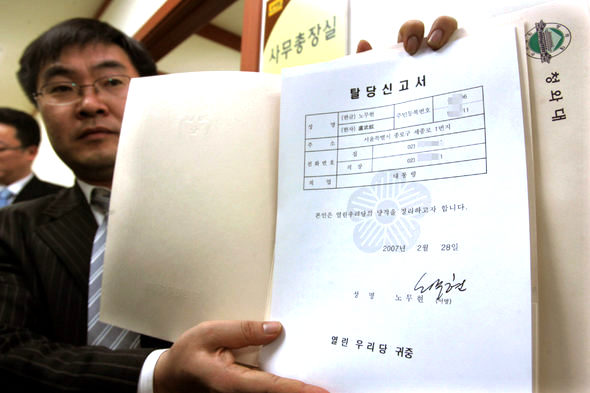 사무총장실
청와대
탈당신고서
성 명
(한글) 노무현
주민등록번호
(한자) 盧武鉉
주 소
서울특별시 종로구 세종로 1번지
전화번호
집
02)
직장
02)
직 업
대통령
본인은 열린우리당의 당적을 정리하고자 합니다.
2007년 2월 28일
성 명 노무현 (서명)
노무현
열린 우리당 귀중